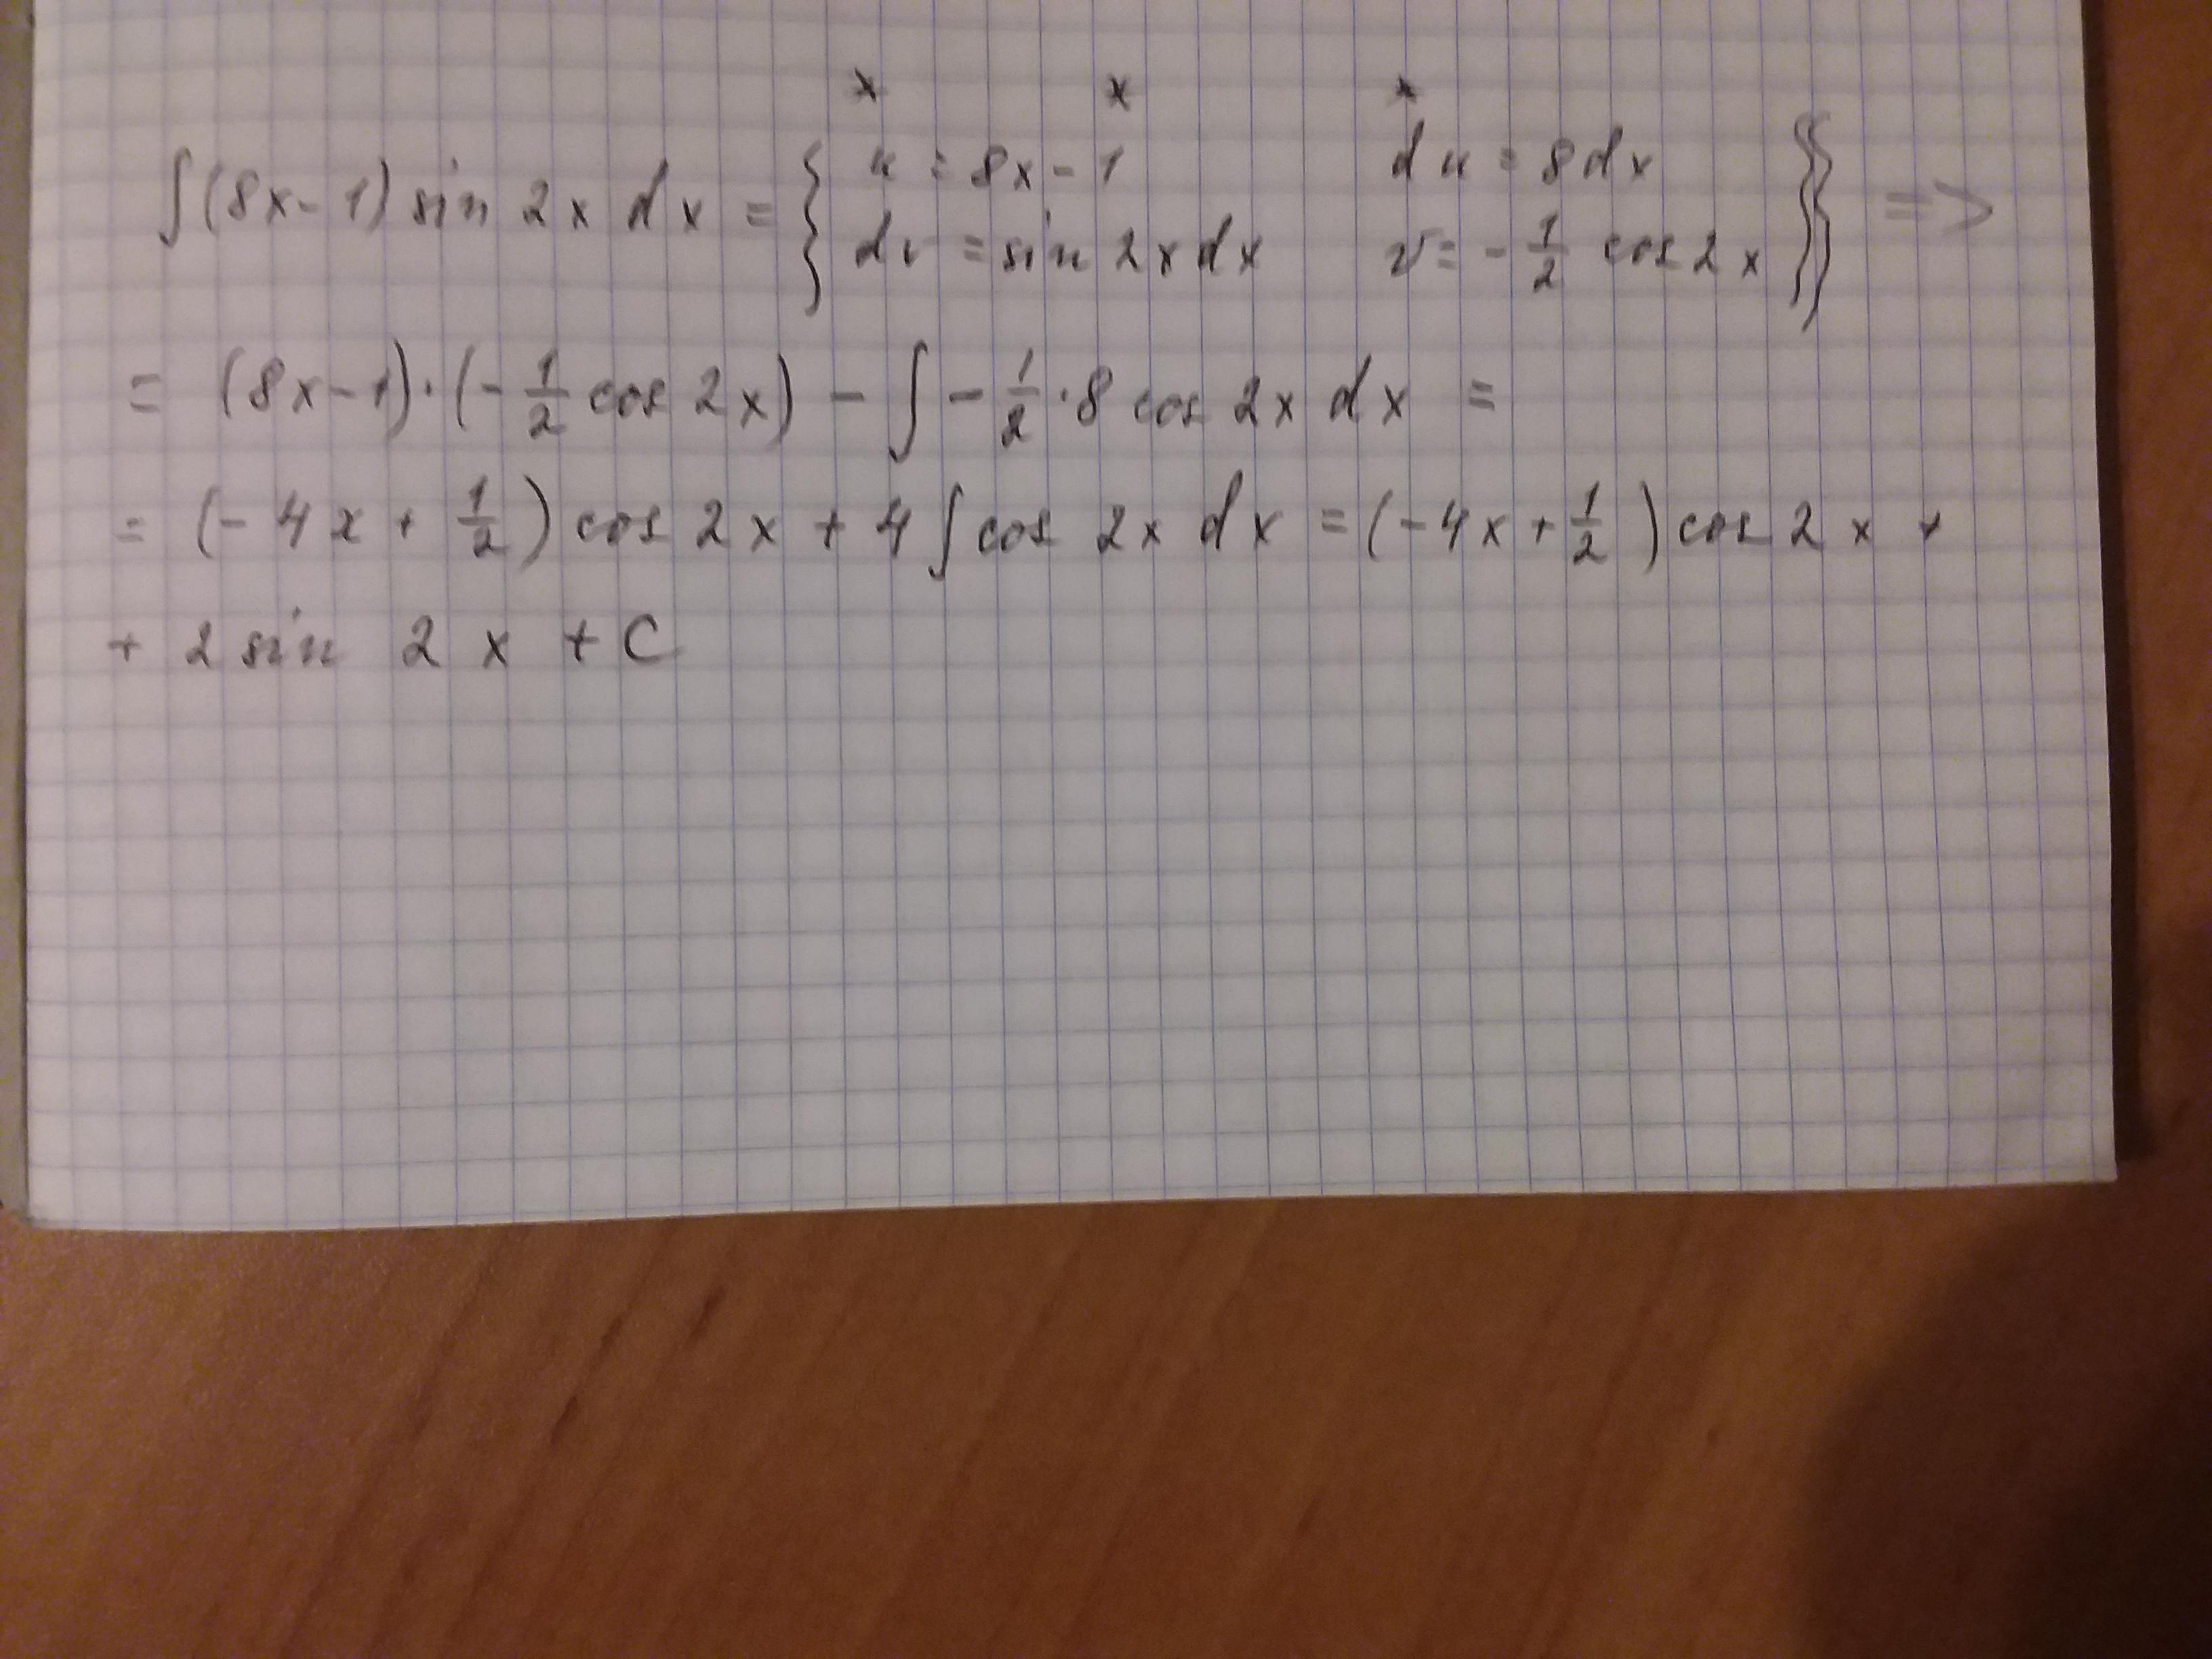 x x x
∫(8x-1) sin 2x dx = { u = 8x-1 du = 8dx
dv = sin 2x dx v = -1/2 cos 2x } } =>
= (8x-1)·(-1/2 cos 2x) - ∫ -1/2 ·8 cos 2x dx =
= (-4x + 1/2) cos 2x + 4∫ cos 2x dx = (-4x + 1/2) cos 2x +
+ 2 sin 2x + C